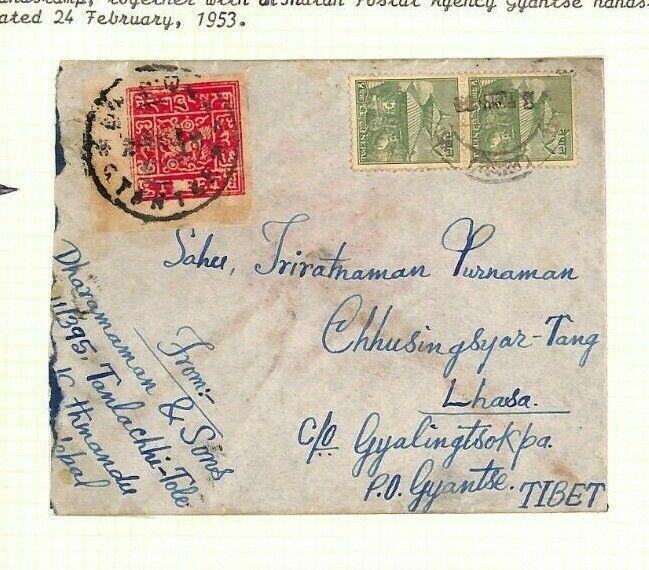 together with an Indian Postal Agency Gyantse
ated 24 February, 1953.
GYANTSE
Sahu, Triratnaman Purnaman
Chhusingsyar-Tang
Lhasa.
C/o Gyalingtsokpa.
P.O. Gyantse. TIBET
From:-
Dharamaman & Sons
11/395, Tanlachhi-Tole
Kathmandu
Nepal